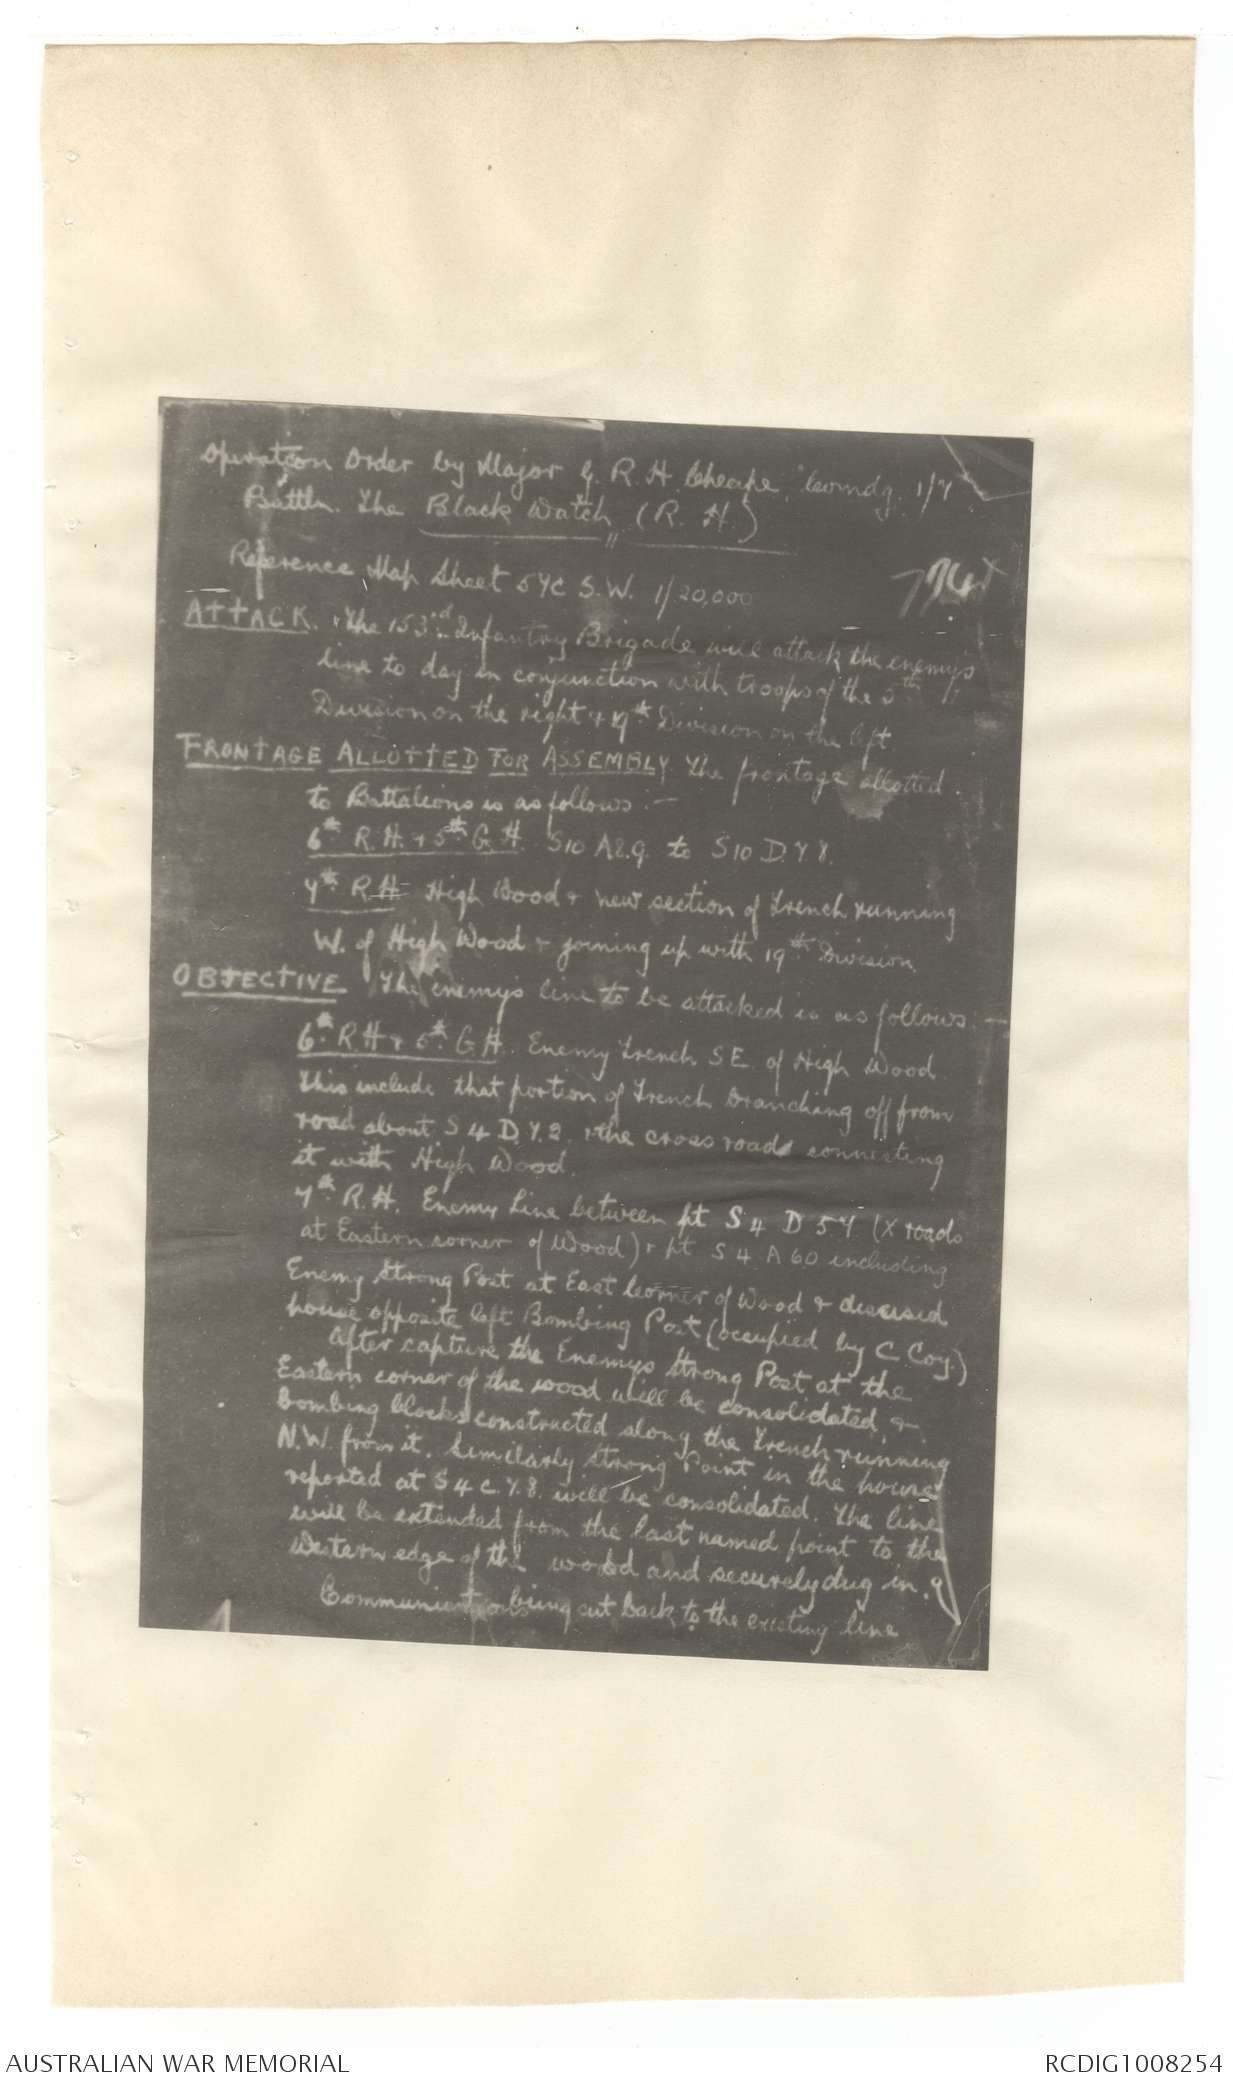 Operation Order by Major G. R. H. Cheape, Comdg. 1/7
Battln. The Black Watch (R. H.)
Reference Map Sheet 57C S.W. 1/20,000
ATTACK. The 153rd Infantry Brigade will attack the enemy's
line to day in conjunction with troops of the 5th
Division on the right & 19th Division on the left
FRONTAGE ALLOTTED FOR ASSEMBLY. The frontage allotted
to Battalions is as follows:-
6th R.H. & 5th G.H. S10 A 2.9. to S10 D.7.8.
7th R.H. High Wood & new section of Trench running
W. of High Wood & joining up with 19th Division.
OBJECTIVE The enemys line to be attacked is as follows:-
6th R.H & 5th G.H. Enemy Trench S E. of High Wood
This include that portion of Trench branching off from
road about S 4 D 7.2. & the cross roads connecting
it with High Wood.
7th R.H. Enemy Line between pt S 4 D 5 7 (X roads
at Eastern corner of Wood) & pt S 4 A 60 including
Enemy Strong Post at East Corner of Wood & disused
house opposite left Bombing Post (occupied by C. Coy.)
After capture the Enemys Strong Post at the
Eastern corner of the wood will be consolidated, &
bombing blocks constructed along the Trench running
N.W. from it. Similarly Strong Point in the house
reported at S 4 C. 7. 8. will be consolidated. The line
will be extended from the last named point to the
Western edge of the wood and securely dug in.
Communications being cut back to the existing line
AUSTRALIAN WAR MEMORIAL
RCDIG1008254